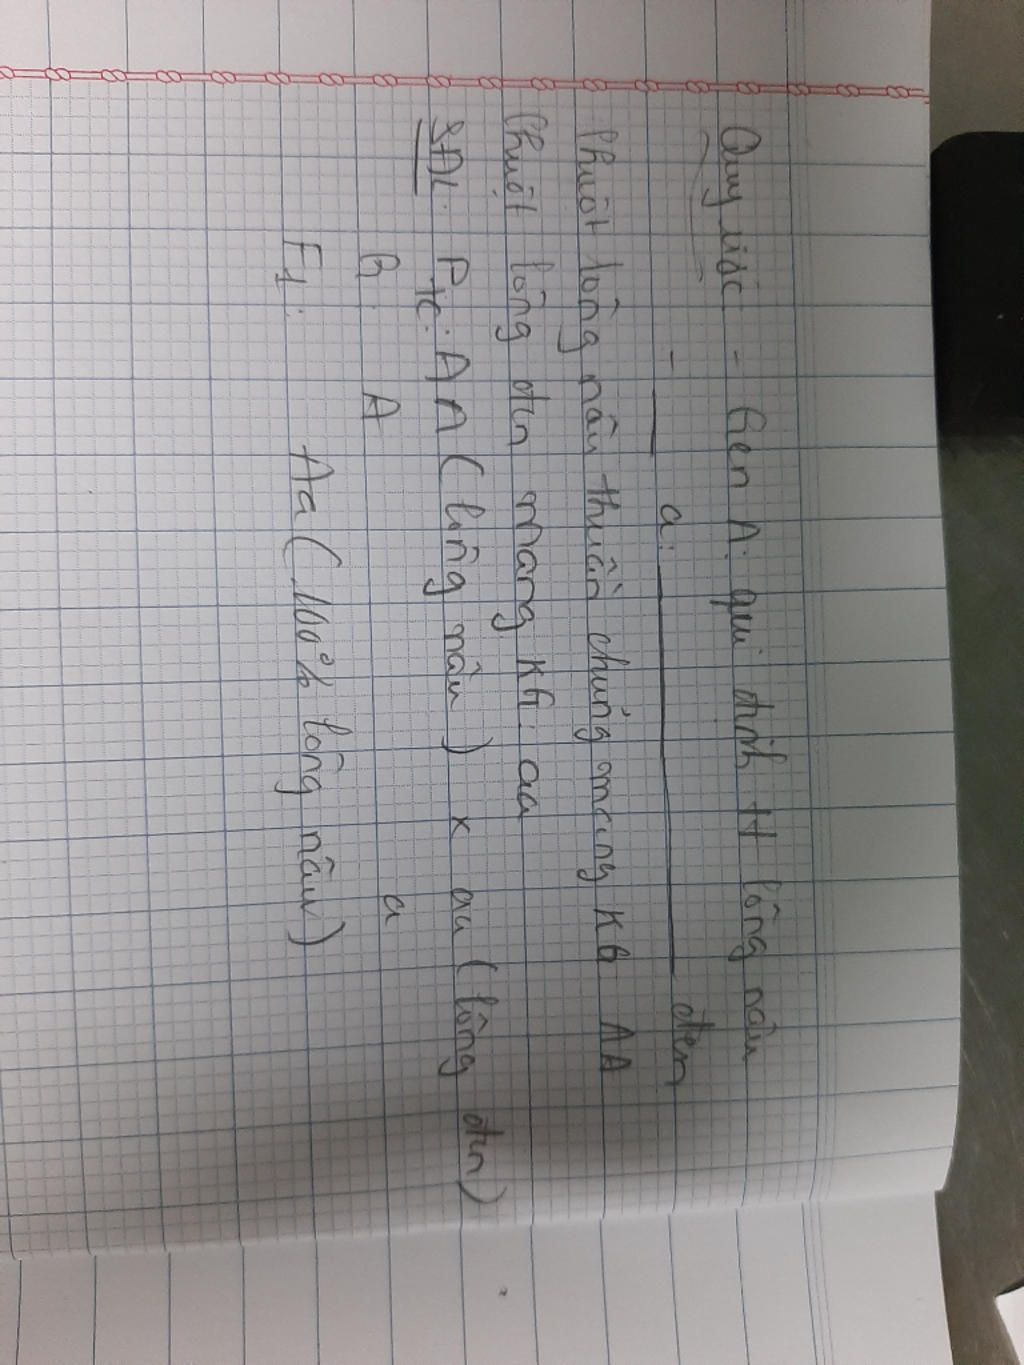 Quy ước - Gen A: qui định tt lông nâu
- — a: — đen
Chuột lông nâu thuần chủng mang KG AA
Chuột lông đen mang KG: aa
SĐL: Ptc: AA (lông nâu) x aa (lông đen)
G: A a
F1: Aa (100% lông nâu)